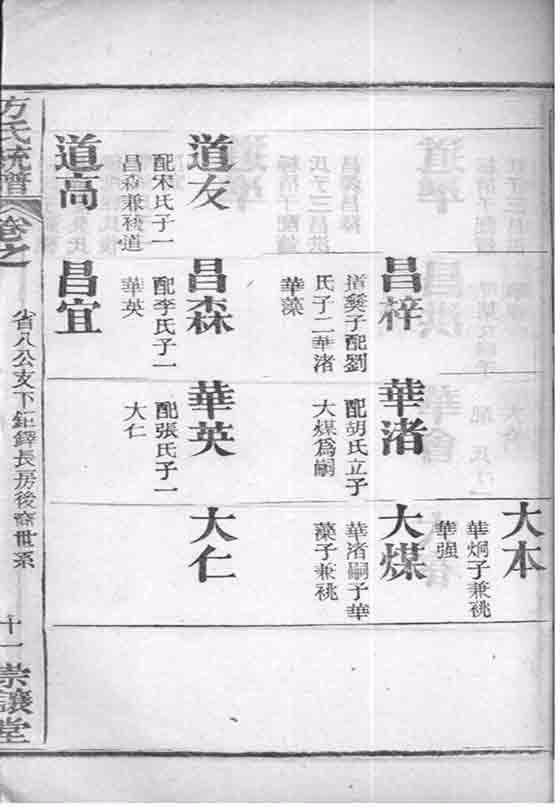 大本
華炯子兼祧
華强
昌梓
道燊子配劉
氏子二華渚
華藻
華渚
配胡氏立子
大煤爲嗣
大煤
華渚嗣子華
藻子兼祧
道友
配宋氏子一
昌森兼祧道
昌森
配李氏子一
華英
華英
配張氏子一
大仁
大仁
道高
昌宜
方氏統譜
卷之
省八公支下鉅鐸長房後裔世系
十一
崇讓堂